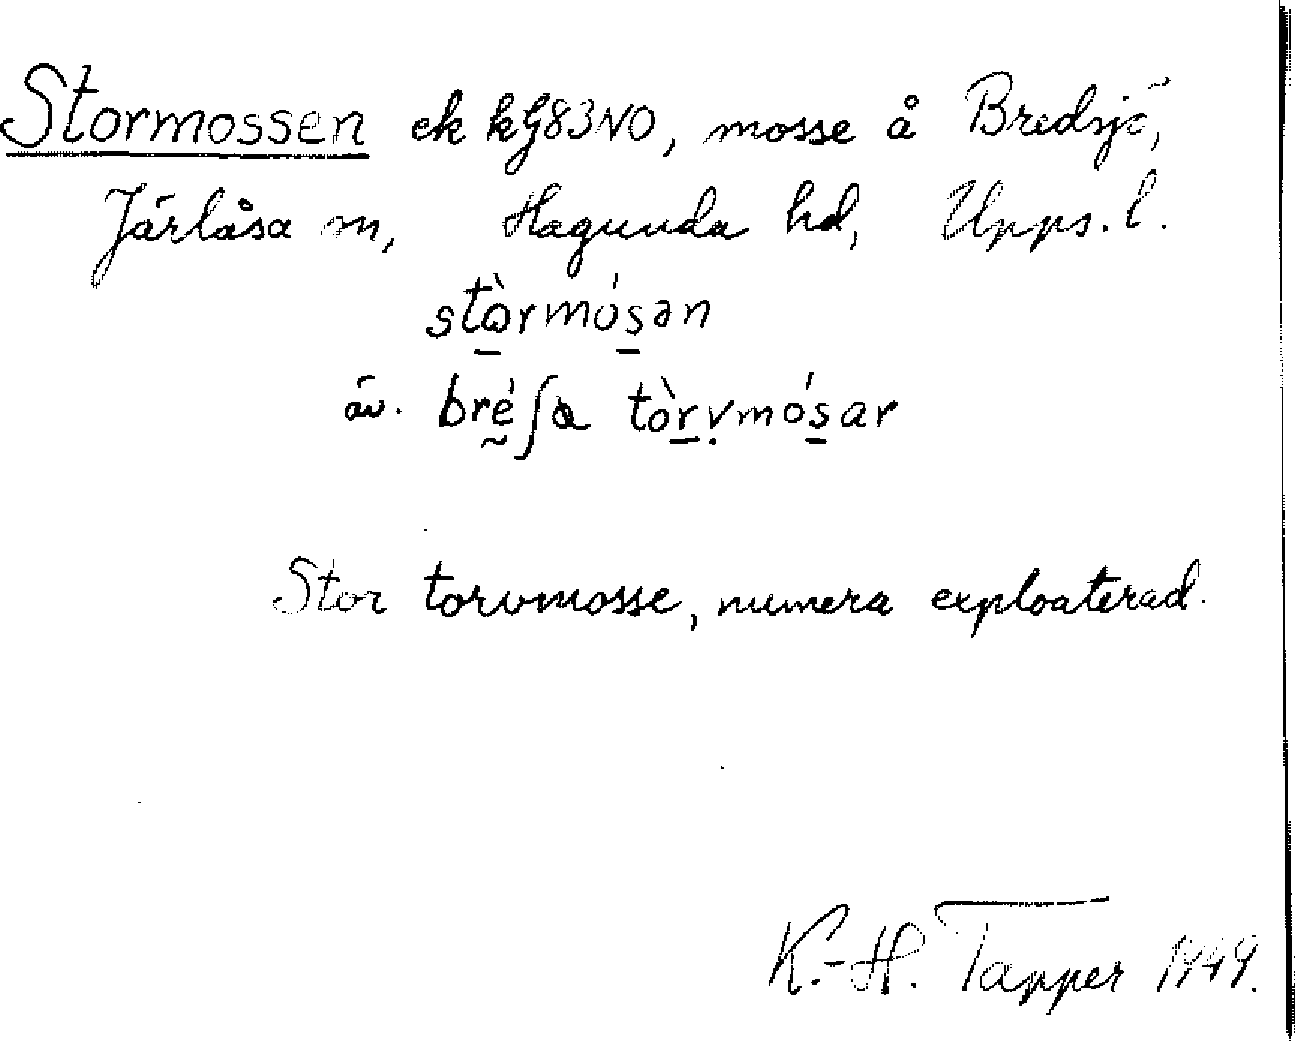 Stormossen ek kG83NO, mosse å Bredsjö,
Järlåsa sn, Hagunda hd, Upps. l.
stòrmósən
äv. bréʃa tòrvmósar
Stor torvmosse, numera exploaterad.
K.-H. Tapper 1949.